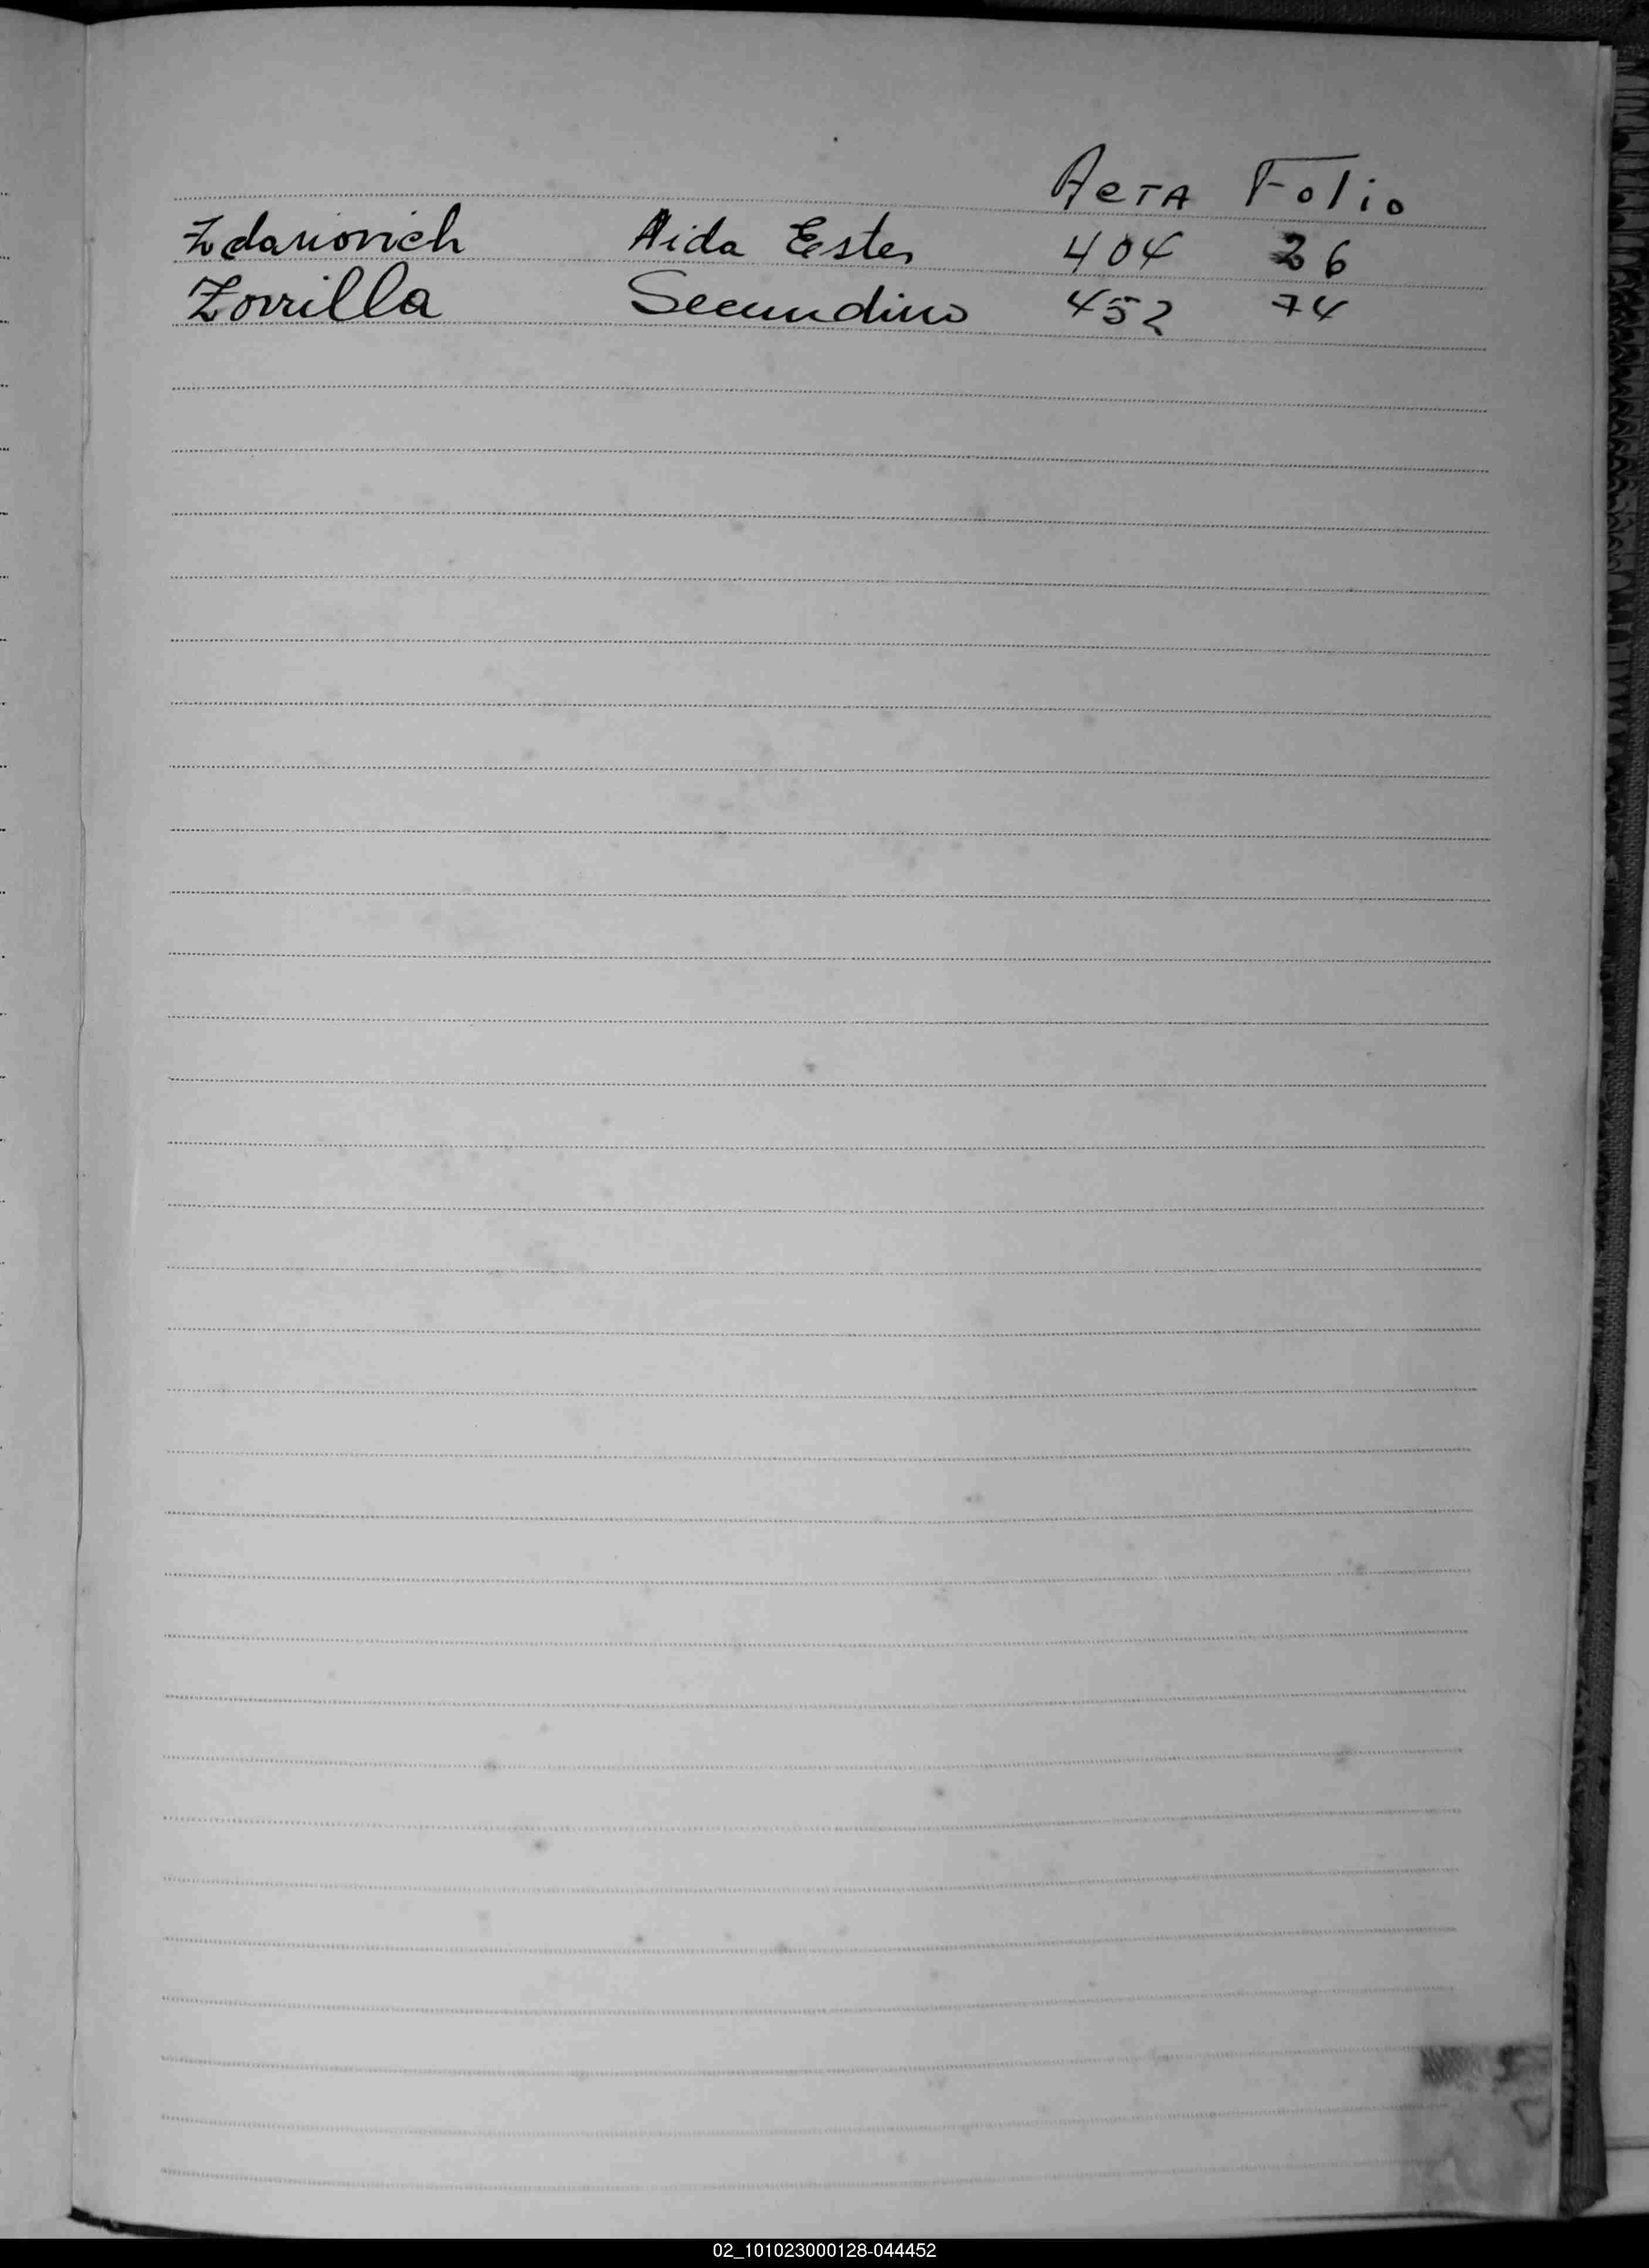 Acta Folio
Zdariovich Aida Ester 404 26
Zorrilla Secundino 452 74
02_101023000128-044452